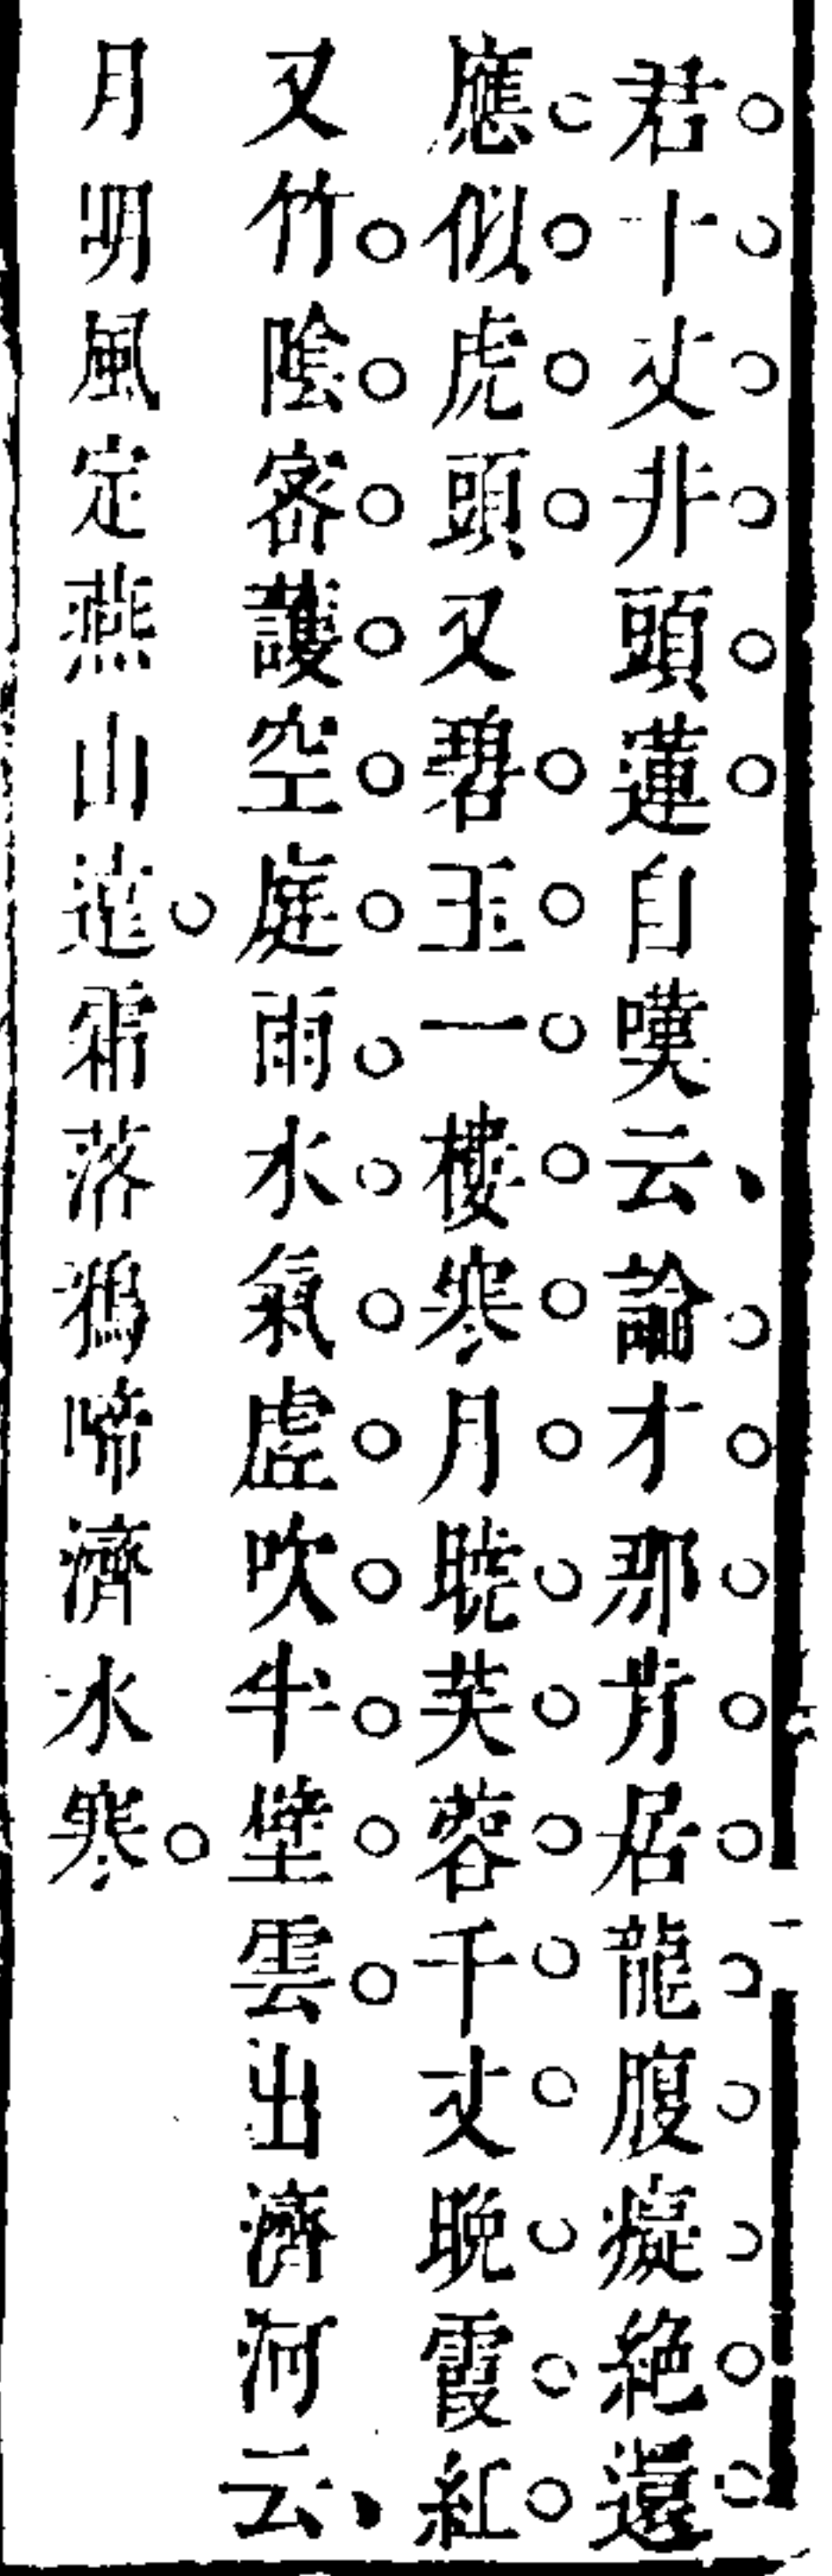 君十丈井頭蓮自嘆云論才那肯居龍腹癡絶還
應似虎頭又碧玉一樓寒月曉芙蓉千丈晚霞紅
又竹陰密護空庭雨水氣虛吹半壁雲出濟河云
月明風定燕山遠霜落鴉啼濟水寒